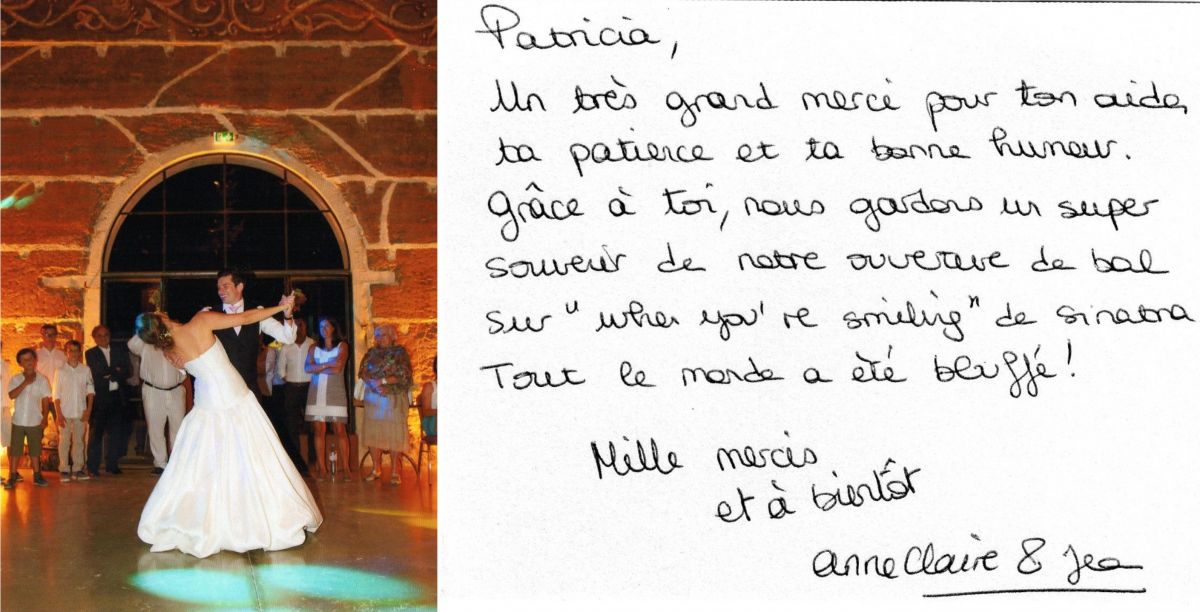 Patricia,
Un très grand merci pour ton aide,
ta patience et ta bonne humeur.
Grâce à toi, nous gardons un super
souvenir de notre ouverture de bal
sur "when you're smiling" de sinatra
Tout le monde a été bluffé !
Mille mercis
et à bientôt
anneClaire & Jean